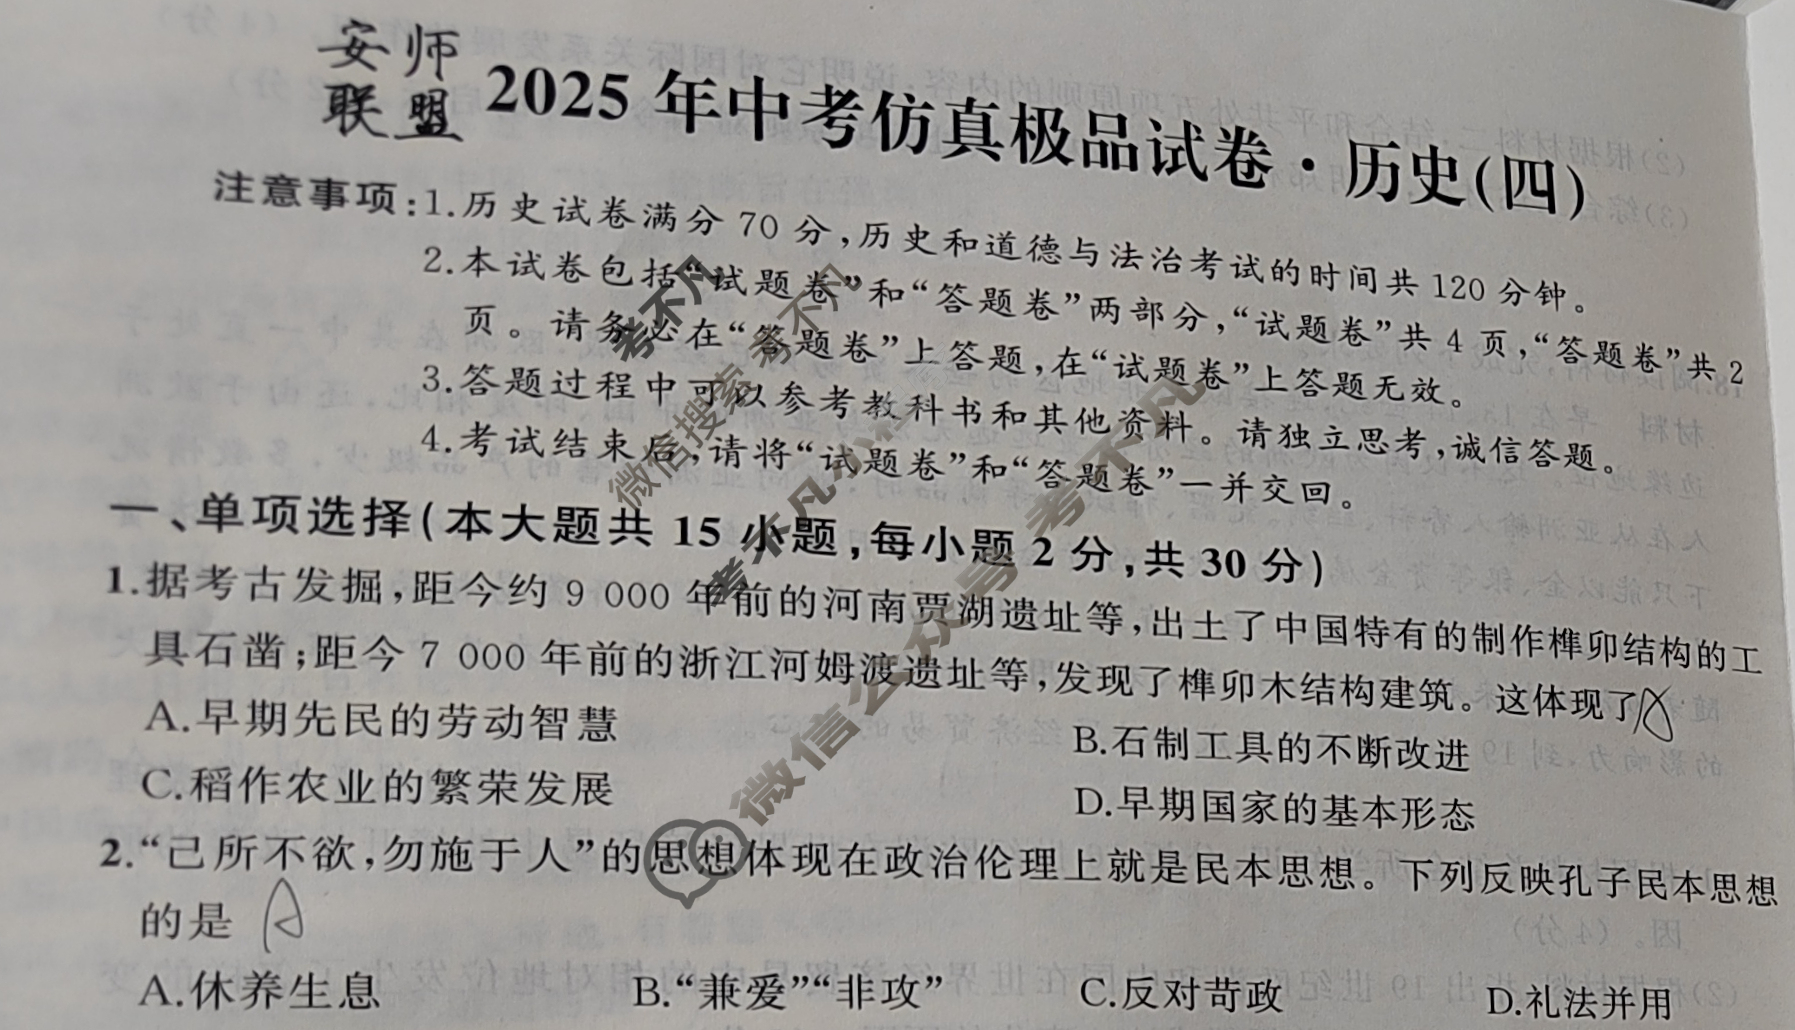 安师联盟
2025年中考仿真极品试卷·历史(四)
注意事项:1.历史试卷满分70分,历史和道德与法治考试的时间共120分钟。
2.本试卷包括“试题卷”和“答题卷”两部分,“试题卷”共4页,“答题卷”共2
页。请务必在“答题卷”上答题,在“试题卷”上答题无效。
3.答题过程中可以参考教科书和其他资料。请独立思考,诚信答题。
4.考试结束后,请将“试题卷”和“答题卷”一并交回。
一、单项选择(本大题共15小题,每小题2分,共30分)
1.据考古发掘,距今约9 000年前的河南贾湖遗址等,出土了中国特有的制作榫卯结构的工
具石凿;距今7 000年前的浙江河姆渡遗址等,发现了榫卯木结构建筑。这体现了 A
A.早期先民的劳动智慧 B.石制工具的不断改进
C.稻作农业的繁荣发展 D.早期国家的基本形态
2.“己所不欲,勿施于人”的思想体现在政治伦理上就是民本思想。下列反映孔子民本思想
的是
A.休养生息 B.“兼爱”“非攻” C.反对苛政 D.礼法并用
考不凡
微信搜索 考不凡
考不凡小社
微信公众号 考不凡